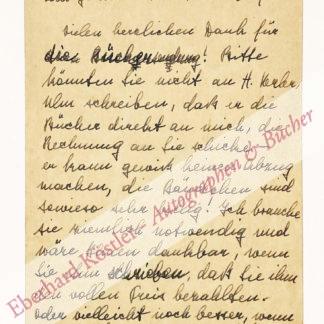 vielen herzlichen Dank für
die Büchersendung! Bitte
könnten Sie nicht an H. Kerler,
Ulm schreiben, dass er die
Bücher direkt an mich, die
Rechnung an Sie schicke,
er kann gewiss keinen Abzug
machen, die Bändchen sind
sowieso sehr billig! Ich brauche
sie ziemlich notwendig und
wäre Ihnen dankbar, wenn
Sie ihm schrieben, dass Sie ihm
den vollen Preis bezahlten.
oder vielleicht noch besser, wenn
Eberhard Köstler - Autographen & Bücher